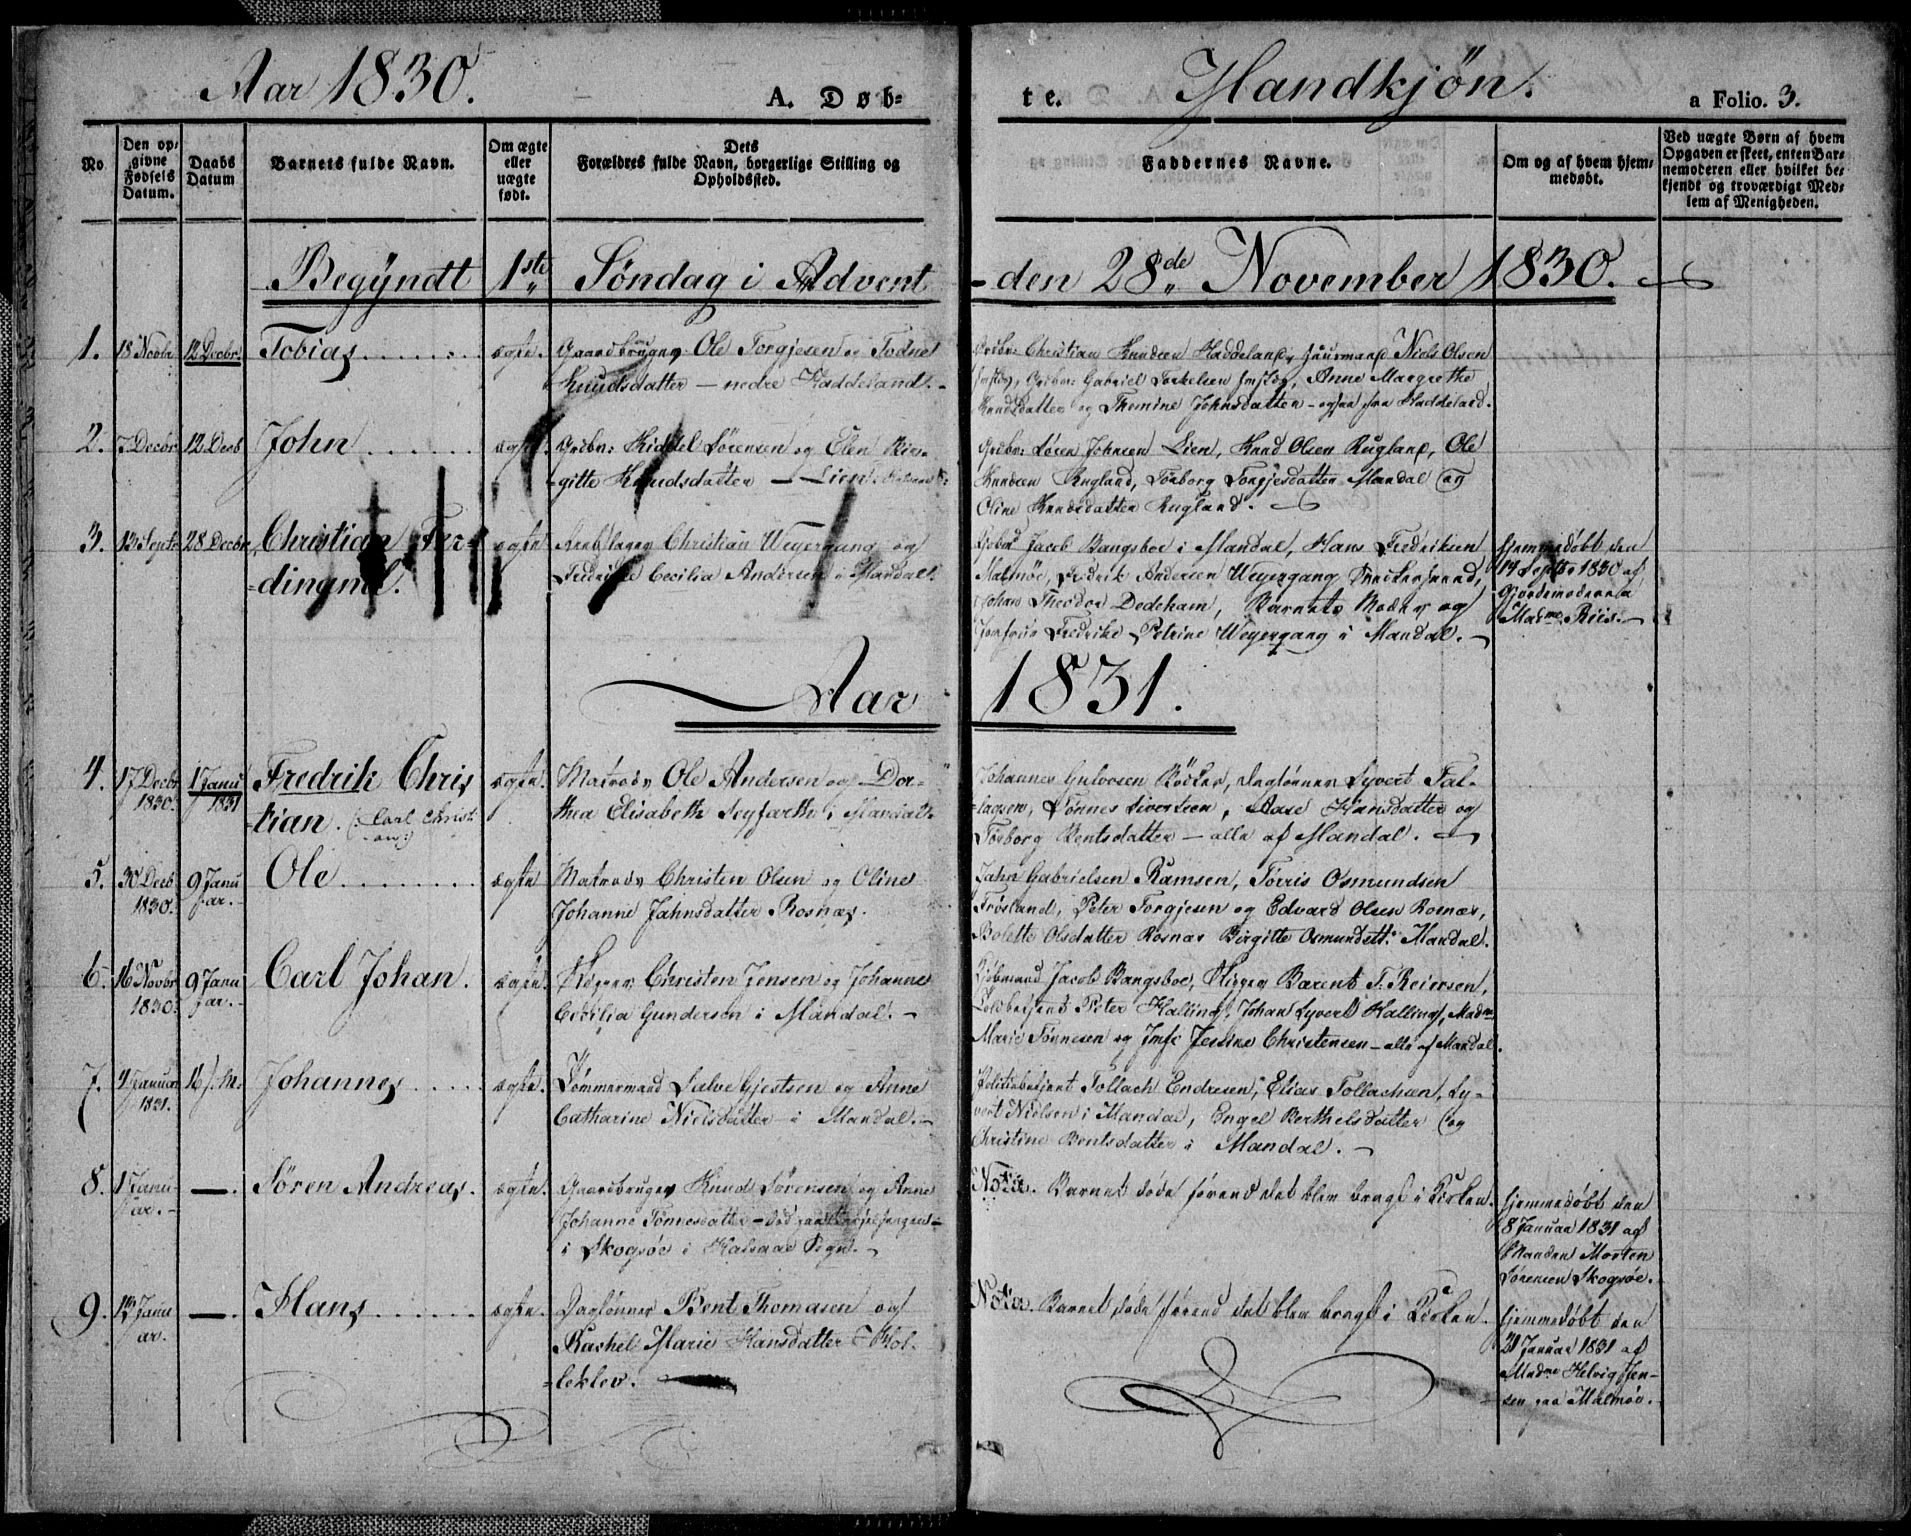 Aar 1830.
A. Døb-
te.
Handkjøn.
a Folio. 3.
No.
Den op-
givne
Fødsels
Datum.
Daabs
Datum
Barnets fulde Navn.
Om ægte
eller
uægte
født.
Dets
Forældres fulde Navn, borgerlige Stilling og
Opholdssted.
Faddernes Navne.
Om og af hvem hjem-
medøbt.
Ved uægte Børn af hvem
Opgaven er skeet, enten Bar-
nemoderen eller hvilket be-
kjendt og troværdigt Med-
lem af Menigheden.
Begÿndt 1ste Søndag i Advent
den 28de November 1830.
1. 18 Novbr 12 Decbr. Tobias ægte. Gaardbruger Ole Torgjesen og Todne
Knudsdatter – nedre Haddeland.
Christian Knudsen Haddeland, Huusmand Niels Olsen
Gabriel Torkelsen, Anne Margrethe
Knudsdatter og Themine Johnsdatter – ogsaa fra Haddeland.
2. 7 Decbr 12 Decb John ægte. Grdbr: Kiddel Sørensen og Elen Bir-
gitte Knudsdatter – Lien.
Grdbr: Søren Johnsen Lien, Knud Olsen Rugland, Ole
Knudsen Rugland, Tørborg Torgjesdatter Mandal og
Oline Knudsdatter Rugland.
3. 13 Septr 28 Decbr Christian Fer-
dinand. ægte Christian Weyergang og
Fredrike Cecilia Andersen i Mandal.
Jacob Bangsboe i Mandal, Hans Fredriksen
Malmøe, Fredrik Andersen Weyergang
Johan Theodor Dedekam, Barnets Moder og
Jomfrue Fredrike Petrine Weyergang i Mandal.
Hjemmedøbt den
14 Septbr 1830 af
Gjordemoderen
Madme Riis.
Aar 1831.
4. 17 Decbr
1830. 1 Janu
1831 Fredrik Chris
tian. (: Carl Christ
ian :) ægte. Matrods Ole Andersen og Dor-
thea Elisabeth Seyfarth i Mandal.
Johannes Gulovsen Bødker, Daglønner Syvert Tal-
lagsen, Tønnes Sivertsen, Aase Hansdatter og
Tørborg Bentsdatter – alle af Mandal.
5. 30 Decb
1830. 9 Janu
ar. Ole ægte Matrods Christen Olsen og Oline
Johanne Jahnsdatter Rosnæs.
Jahn Gabrielsen Ramsen, Tørris Osmundsen
Frøsland, Peter Torgjesen og Edvard Olsen Rosnæs,
Bolette Olsdatter Rosnæs Birgitte Osmundsdtt: Mandal.
6. 16 Novbr
1830. 9 Janu
ar. Carl Johan. ægte. Skipper Christen Jensen og Johanne
Cecilia Gundersen i Mandal.
Kjøbmand Jacob Bangsboe, Skipper Barent T. Reiersen,
Toldbetjent Peter Kalling, Johan Syvert Kalling, Madme
Marie Tønnesen og Jmfr Jessine Christensen – alle af Mandal.
7. 4 Januar
1831. 16 Johannes ægte. Tømmermand Salve Gjertsen og Anne
Catharine Nielsdatter i Mandal.
Politiebetjent Tollach Endresen, Elias Tollachsen, Sy-
vert Nielsen i Mandal, Engel Berthelsdatter og
Christine Bentsdatter i Mandal.
8. 1 Janu-
ar. — Søren Andreas. ægte. Gaardbruger Knud Sørensen og Anne
Johanne Tønnesdatter –
i Skogsøe i Halsaae Sogn.
Nota. Barnet døde førend det blev bragt i Kirken.
Hjemmedøbt den
8 Januar 1831 af
Manden Morten
Sørensen Skogsøe.
9. Janu
ar. — Hans ægte. Daglønner Bent Thomasen og
Rachel Marie Hansdatter i Hol-
leklev.
Nota. Barnet døde førend det blev bragt i Kirken.
Hjemmedøbt den
21 Januar 1831 af
Madme Helvig Jen-
sen paa Malmøe.